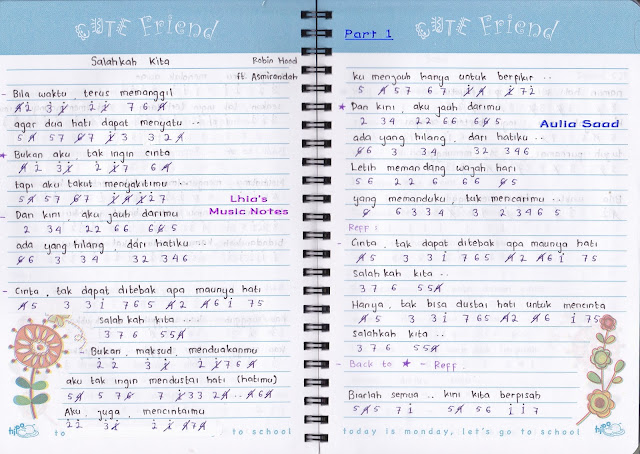 CUTE Friend
Salahkah Kita
Robin Hood
ft. Asmirandah
- Bila waktu, terus memanggil
agar dua hati dapat menyatu ..
5 4 57 67 i 3 3 2 4
★ Bukan aku, tak ingin cinta
tapi aku takut menyakitimu ..
Lhia's
Music Notes
- Dan kini aku jauh darimu
2 34 22 66 665
ada yang hilang, dari hatiku
66 3 34 32 346
- Cinta, tak dapat ditebak apa maunya hati
45 3 3 i 765 42 46 i 75
salahkah kita ..
376 554
- Bukan, maksud, menduakanmu
aku tak ingin mendustai hati (hatimu)
Aku, juga, mencintaimu
hipo
to
to school
Part 1
CUTE Friend
ku menjauh hanya untuk berpikir ..
★ Dan kini, aku jauh darimu
2 34 22 66 665
Aulia Saad
ada yang hilang, dari hatiku ..
66 3 34 32 346
Letih memandang wajah hari
56 22 6 66 65
yang memanduku, tak mencarimu ..
6 6 3 3 4 3 2 3 4 4 6 5
Reff :
- Cinta, tak dapat ditebak apa maunya hati
45 3 3 i 765 42 46 i 75
Salahkah kita ..
376 6 554
- Hanya, tak bisa dustai hati untuk mencinta
45 3 3 i 765 42 46 i 75
Salahkah kita ..
376 554
- Back to ★ - Reff.
Biarlah semua .. kini kita berpisah
545 7i 54 56 i i 7
hipo
today is monday, let's go to school